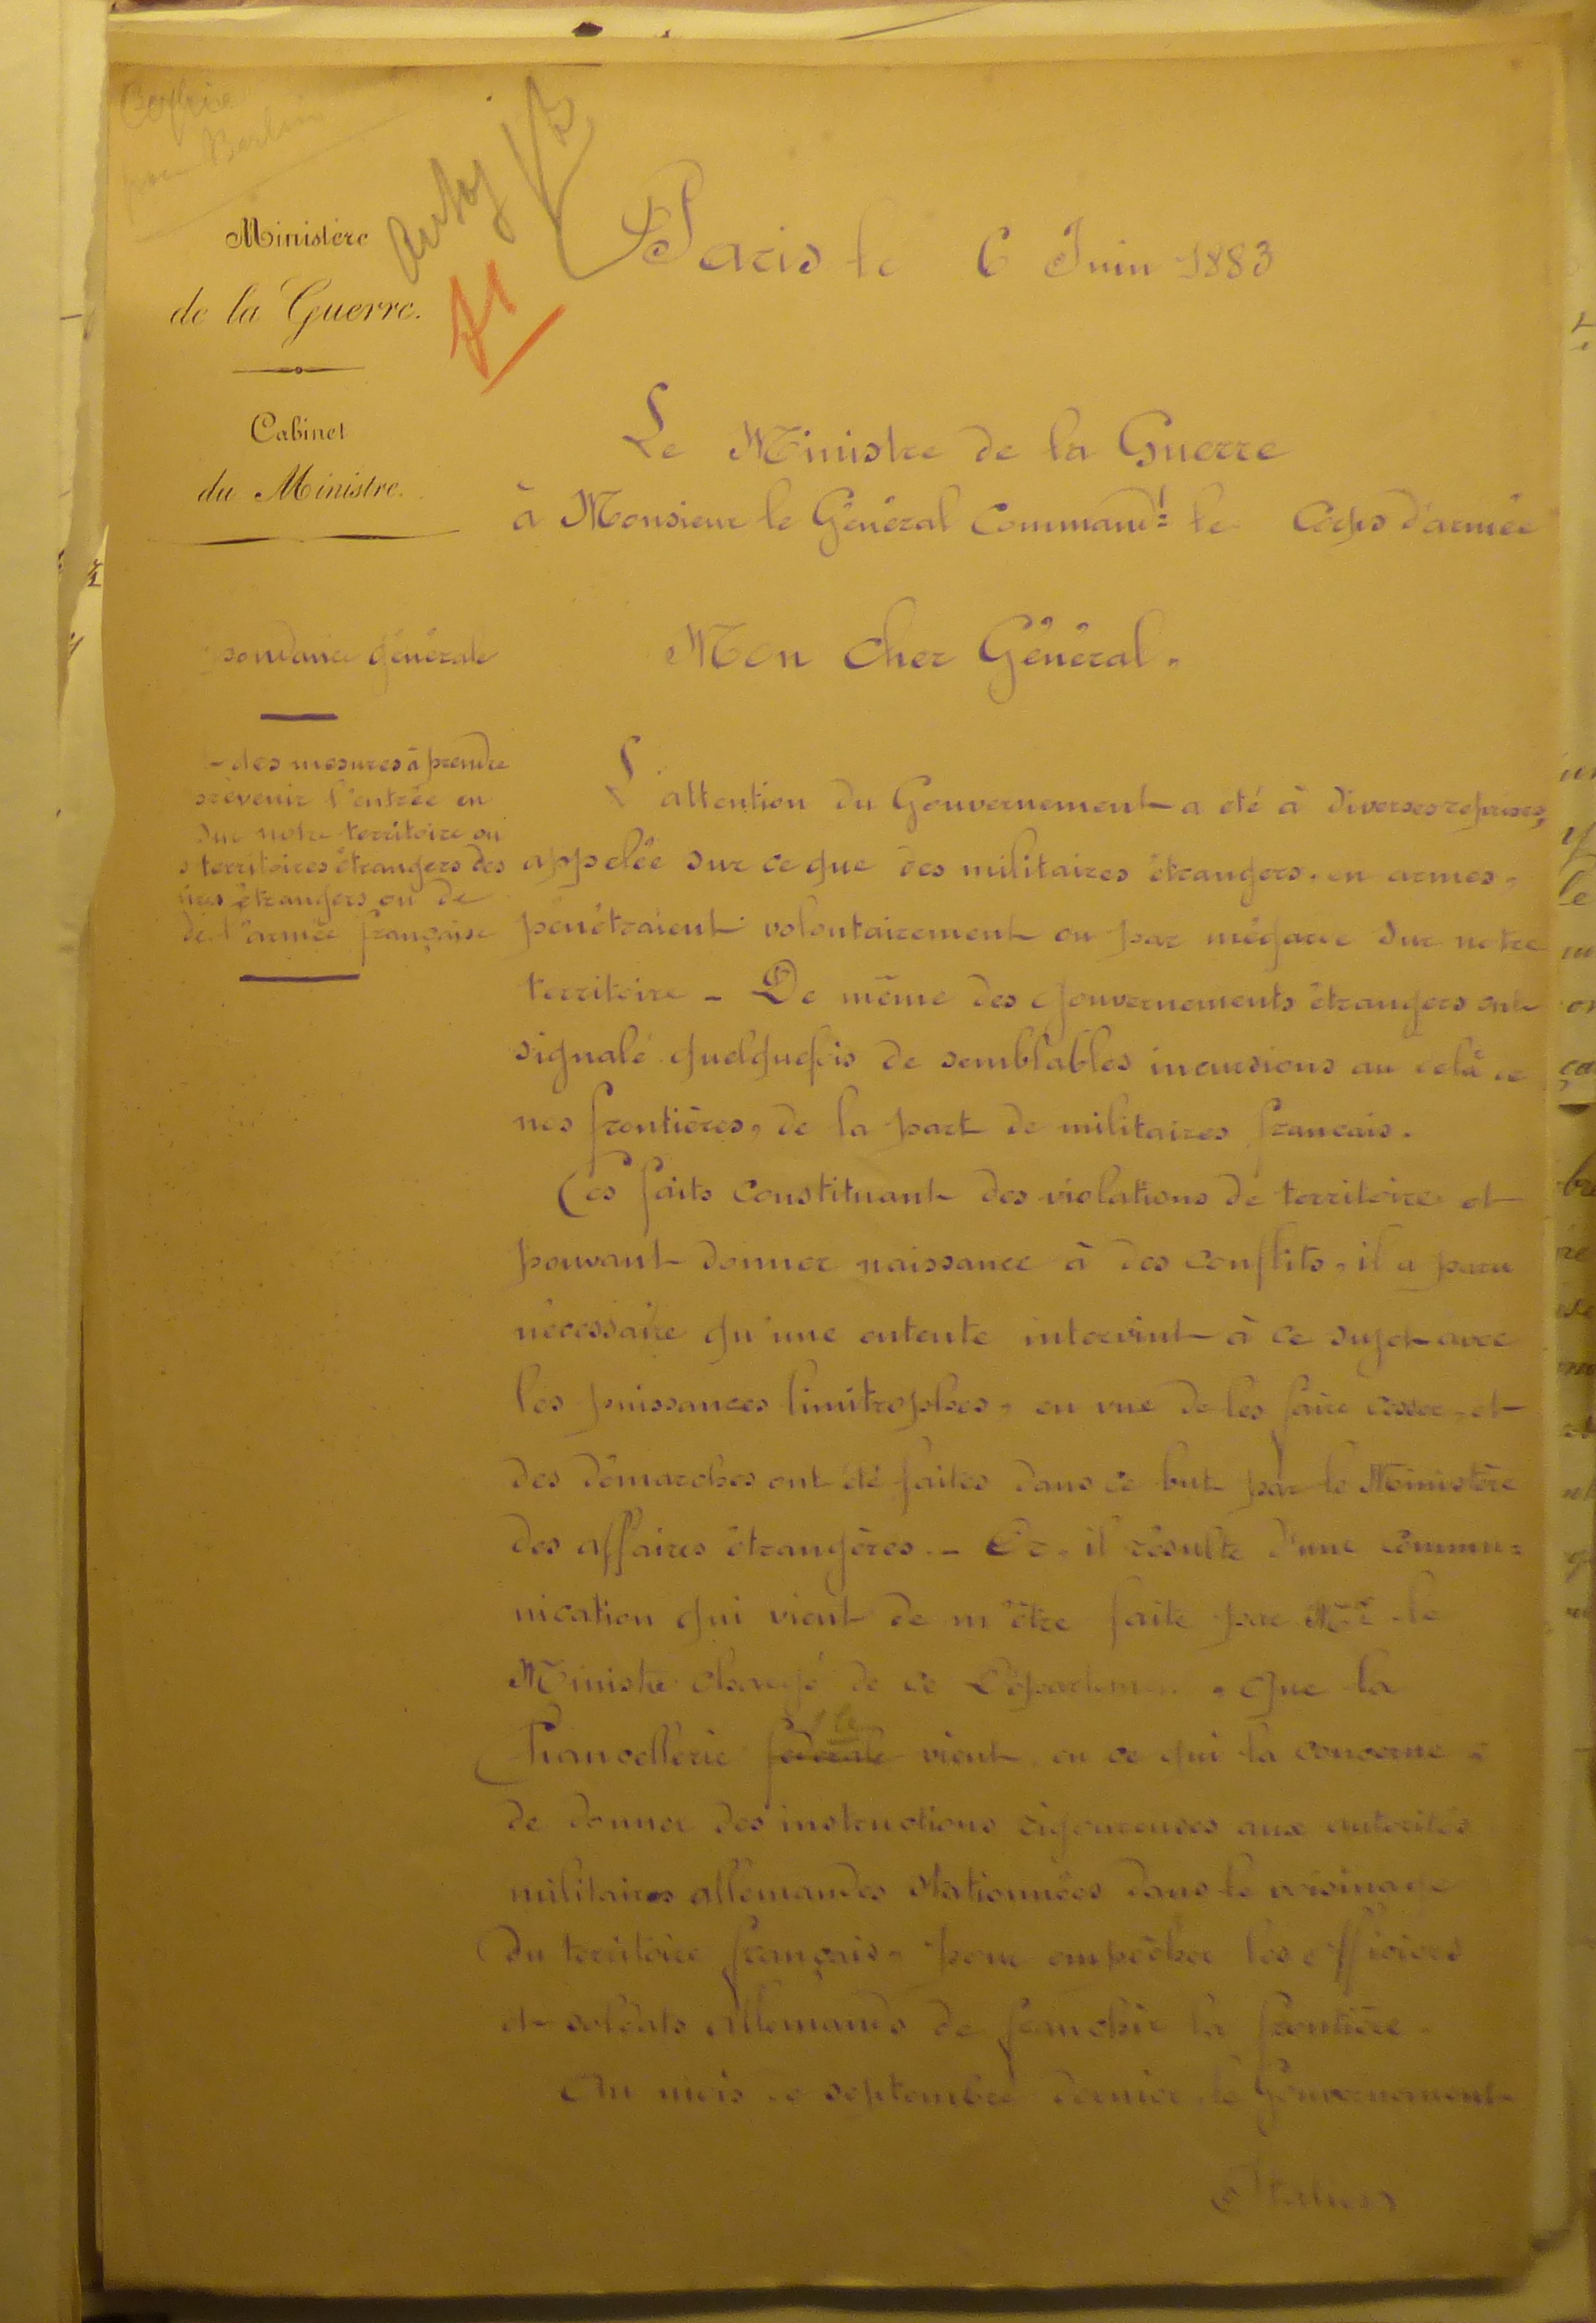 Copie
pour Berlin
Ministère
de la Guerre.
Cabinet
du Ministre.
Paris le 6 Juin 1883
Le Ministre de la Guerre
à Monsieur le Général Command.t le Corps d'armée
pondance générale
des mesures à prendre
prévenir l'entrée en
sur notre territoire ou
s territoires étrangers des
ires étrangers ou de
de l'armée française
Mon cher Général,
L'attention du Gouvernement a été à diverses reprises,
appelée sur ce que des militaires étrangers, en armes,
pénétraient volontairement ou par mégarde sur notre
territoire - De même des Gouvernements étrangers ont
signalé quelquefois de semblables incursions au delà de
nos frontières, de la part de militaires français.
Ces faits constituant des violations de territoire et
pouvant donner naissance à des conflits, il a paru
nécessaire qu'une entente intervint à ce sujet avec
les puissances limitrophes, en vue de les faire cesser, et
des démarches ont été faites dans ce but par le Ministère
des affaires étrangères. - Or, il résulte d'une commu=
nication qui vient de m'être faite par Mr le
Ministre chargé de ce Département, que la
Chancellerie fédérale vient, en ce qui la concerne,
de donner des instructions rigoureuses aux autorités
militaires allemandes stationnées dans le voisinage
du territoire français, pour empêcher les officiers
et soldats allemands de franchir la frontière.
Au mois de septembre dernier, le Gouvernement